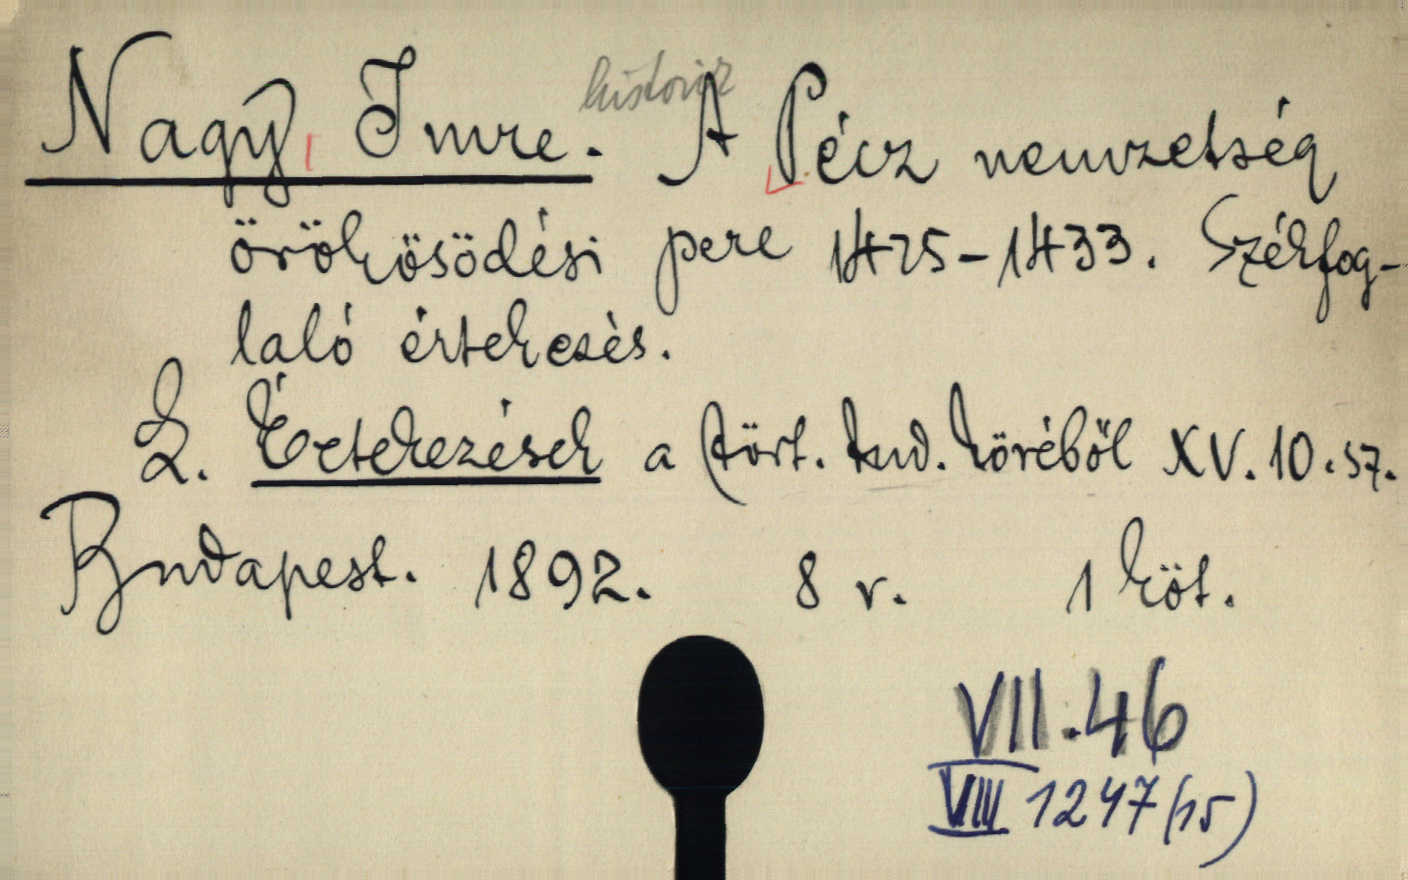 Nagy, Imre. historicz A Pécz nemzetség
örökösödési pere 1425-1433. Székfog-
laló értekezés.
L. Értekezések a (tört. tud. köréből XV. 10. sz.
Budapest. 1892. 8 r. 1 köt.
VII.46
VIII 1247(15)